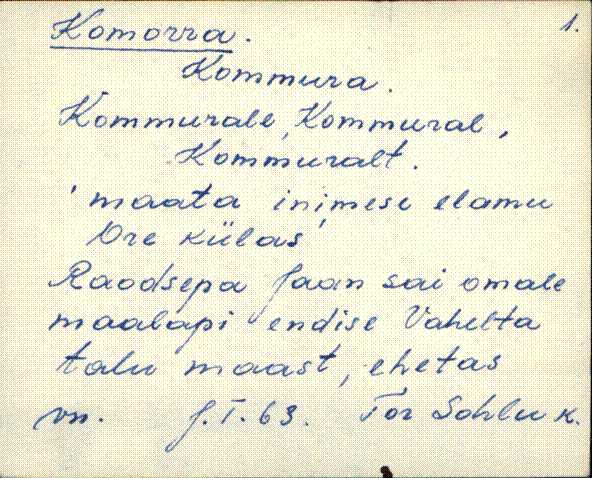 Komorra.
1.
Kommura.
Kommurale, Kommural,
Kommuralt.
'maata inimese elamu
Ore külas'
Raodsepa Jaan sai omale
maalapi endise Vahelta
talu maast, ehetas
vn. J.T.63. Tor Sohlu k.